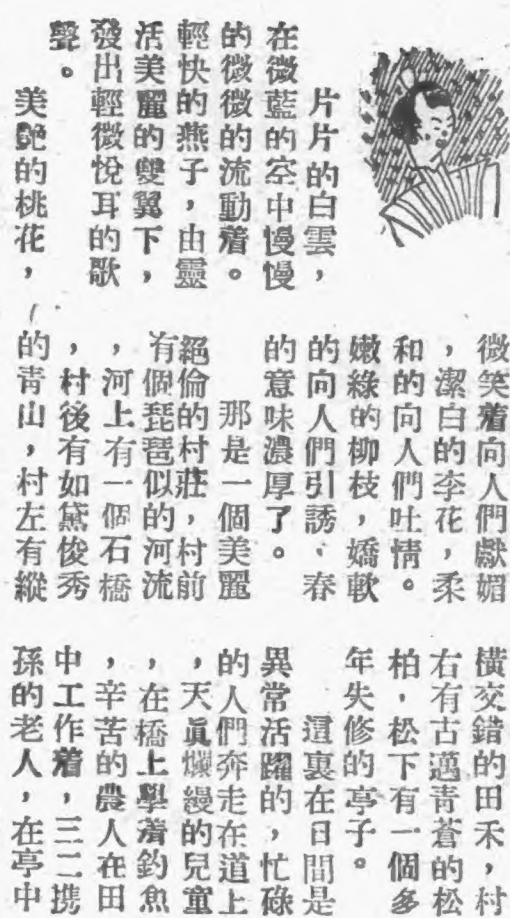 片片的白雲，
在微藍的空中慢慢
的微微的流動着。
輕快的燕子，由靈
活美麗的雙翼下，
發出輕微悅耳的歌
聲。
美艷的桃花，
微笑着向人們獻媚
，潔白的李花，柔
和的向人們吐情。
嫩綠的柳枝，嬌軟
的向人們引誘、春
的意味濃厚了。
那是一個美麗
絕倫的村莊，村前
有個琵琶似的河流
，河上有一個石橋
，村後有如黛俊秀
的青山，村左有縱
橫交錯的田禾，村
右有古邁青蒼的松
柏，松下有一個多
年失修的亭子。
這裏在日間是
異常活躍的，忙碌
的人們奔走在道上
，天眞爛縵的兒童
，在橋上學着釣魚
，辛苦的農人在田
中工作着，三二携
孫的老人，在亭中